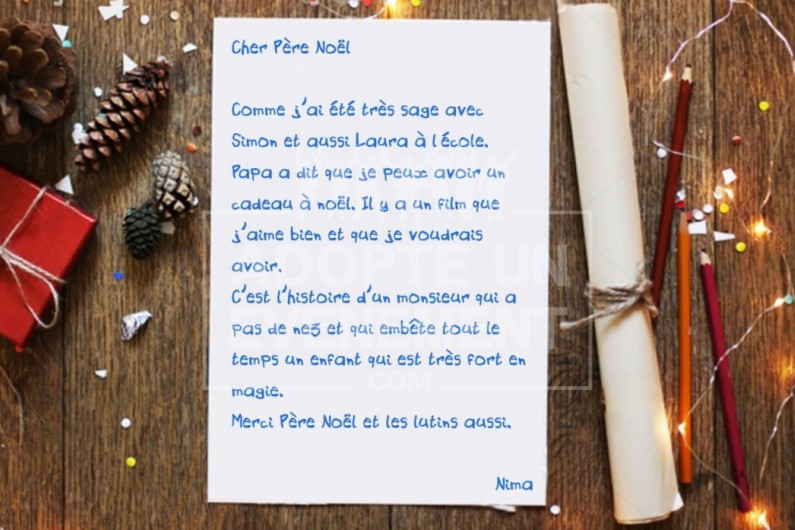 Cher Père Noël
Comme j'ai été très sage avec
Simon et aussi Laura à l'école.
Papa a dit que je peux avoir un
cadeau à noël. Il y a un film que
j'aime bien et que je voudrais
avoir.
C'est l'histoire d'un monsieur qui a
pas de nez et qui embête tout le
temps un enfant qui est très fort en
magie.
Merci Père Noël et les lutins aussi.
Nima
ADOPTE UN
EVENEMENT
.COM